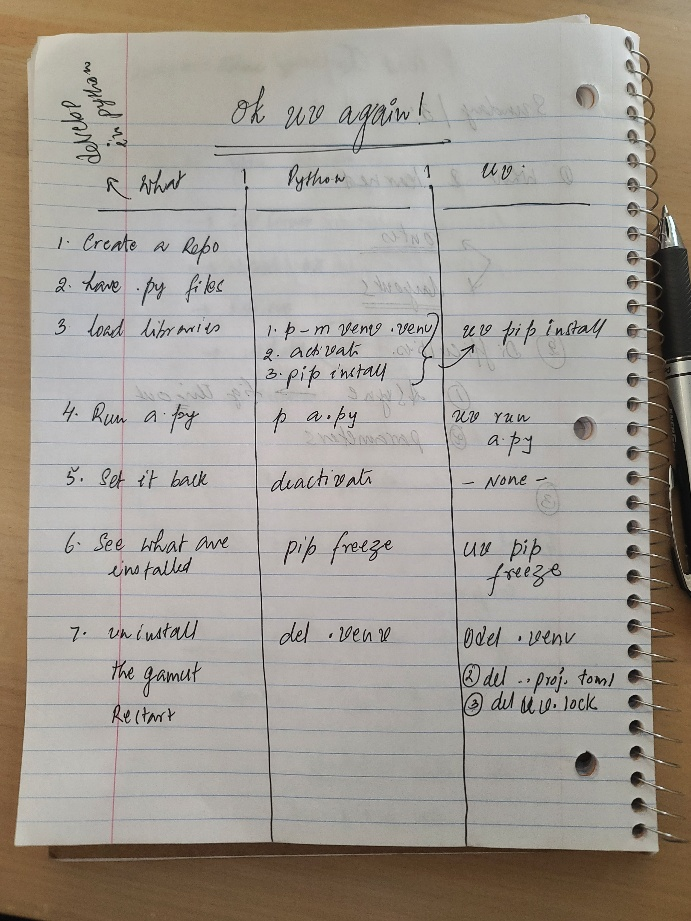 develop
in python
Ok uv again!
What
Python
uv.
1. Create a Repo
2. have .py files
3 load libraries
1. p -m venv .venv
2. activate
3. pip install
uv pip install
4. Run a.py
p a.py
uv run
a.py
5. Set it back
deactivate
- None -
6. See what are
installed
pip freeze
uv pip
freeze
7. uninstall
the gamut
Restart
del .venv
① del .venv
② del .. proj. toml
③ del uv.lock